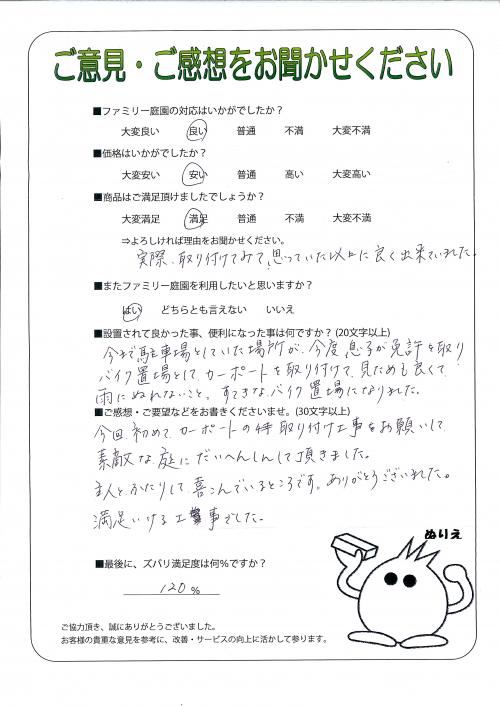 ご意見・ご感想をお聞かせください
■ファミリー庭園の対応はいかがでしたか？
大変良い 良い 普通 不満 大変不満
■価格はいかがでしたか？
大変安い 安い 普通 高い 大変高い
■商品はご満足頂けましたでしょうか？
大変満足 満足 普通 不満 大変不満
⇒よろしければ理由をお聞かせください。
実際、取り付けてみて、思っていた以上に良く出来ていました。
■またファミリー庭園を利用したいと思いますか？
はい どちらとも言えない いいえ
■設置されて良かった事、便利になった事は何ですか？(20文字以上)
今まで駐車場としていた場所が、今度、息子が免許を取り
バイク置場として、カーポートを取り付けて、見ためも良くて
雨にぬれないこと。すてきなバイク置場になりました。
■ご感想・ご要望などをお書きくださいませ。(30文字以上)
今回、初めて、カーポートの取り付け工事をお願いして
素敵な庭にだいへんしんして頂きました。
主人と、ふたりして喜こんでいるところです。ありがとうございました。
満足いける工事でした。
ぬりえ
■最後に、ズバリ満足度は何%ですか？
120 %
ご協力頂き、誠にありがとうございました。
お客様の貴重な意見を参考に、改善・サービスの向上に活かして参ります。